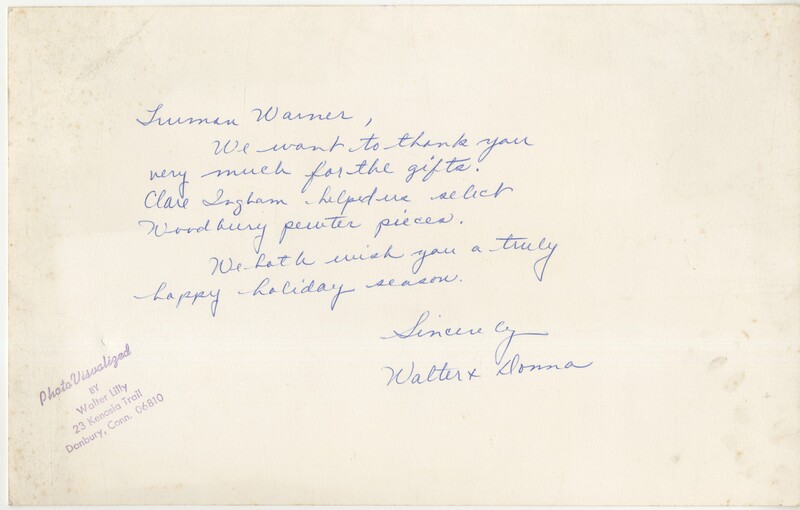 Truman Warner,
We want to thank you
very much for the gifts.
Clare Ingham helped us select
Woodbury pewter pieces.
We both wish you a truly
happy holiday season.
Sincerely
Walter & Donna
PhotoVisualized
BY
Walter Lilly
23 Kenosia Trail
Danbury, Conn. 06810